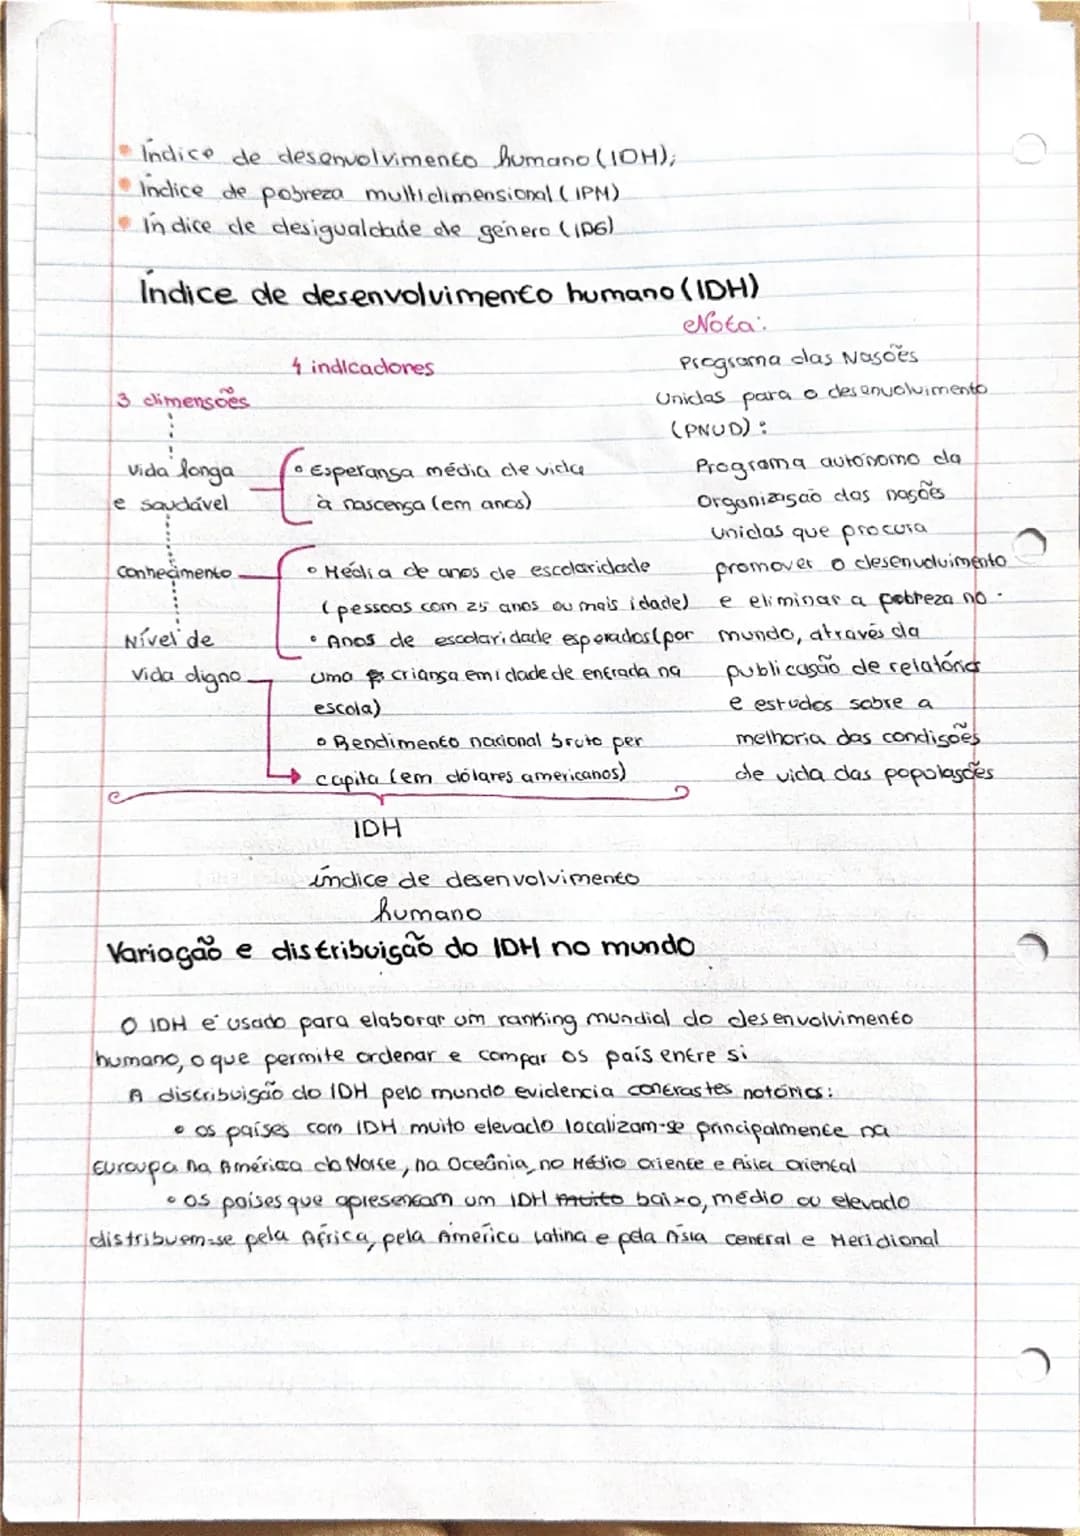 Índice de desenvolvimento humano (IDH);
Índice de pobreza multidimensional (IPM)
Índice de desigualdade de género (IDG)
Índice de desenvolvimento humano (IDH)
4 indicadores
3 dimensões
Vida longa
e saudável
• Esperança média de vida
à nascença (em anos)
conhecimento
• Média de anos de escolaridade
(pessoas com 25 anos ou mais idade)
• Anos de escolaridade esperados (por
uma criança em idade de entrada na
escola)
Nível de
Vida digno
• Rendimento nacional bruto per
capita (em dólares americanos)
Nota:
Programa das Nações
Unidas para o desenvolvimento
(PNUD):
Programa autónomo da
Organização das nações
unidas que procura
promover o desenvolvimento
e eliminar a pobreza no
mundo, através da
publicação de relatórios
e estudos sobre a
melhoria das condições
de vida das populações
IDH
índice de desenvolvimento
humano
Variação e distribuição do IDH no mundo
O IDH é usado para elaborar um ranking mundial do desenvolvimento
humano, o que permite ordenar e compar os país entre si
A distribuição do IDH pelo mundo evidencia contrastes notórios:
• os países com IDH muito elevado localizam-se principalmente na
Euroupa na América do Norte, na Oceânia, no Médio Oriente e Ásia Oriental
• os países que apresentam um IDH muito baixo, médio ou elevado
distribuem-se pela África, pela América Latina e pela Ásia central e Meridional